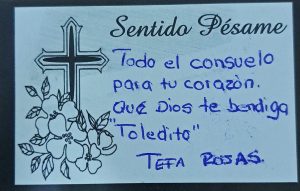 Sentido Pésame
Todo el consuelo
para tu corazón.
Qué Dios te bendiga
"Toledito"
TEFA ROJAS.